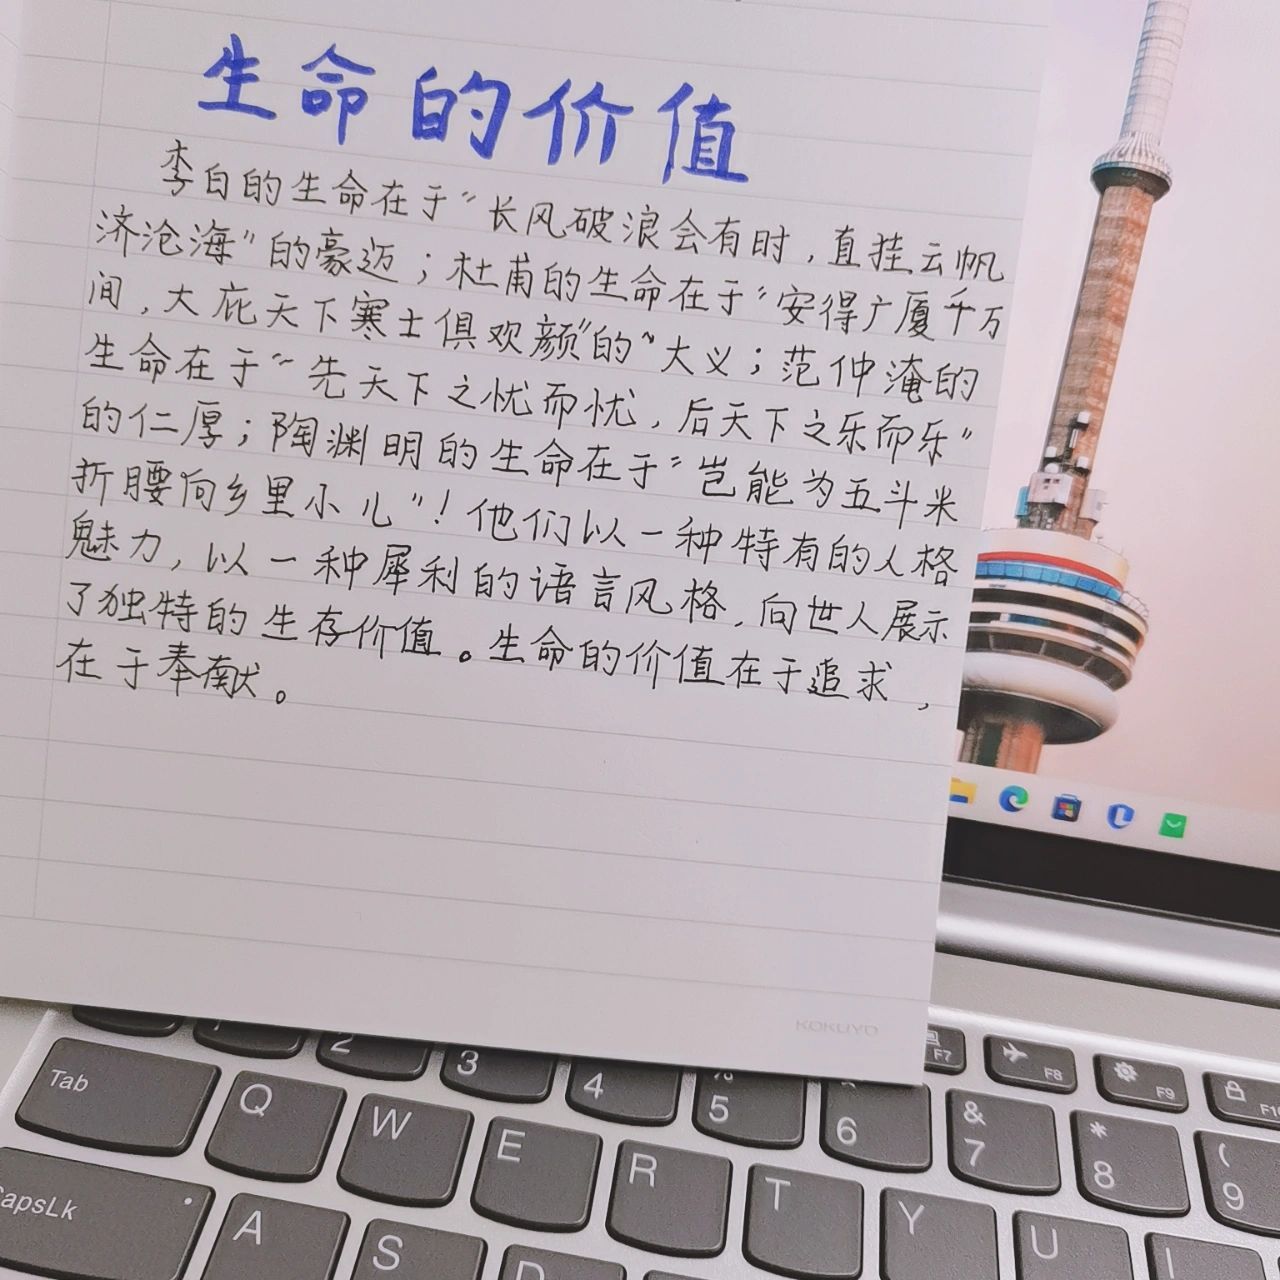 生命的价值
李白的生命在于“长风破浪会有时，直挂云帆
济沧海”的豪迈；杜甫的生命在于“安得广厦千万
间，大庇天下寒士俱欢颜”的“大义；范仲淹的
生命在于“先天下之忧而忧，后天下之乐而乐”
的仁厚；陶渊明的生命在于“岂能为五斗米
折腰向乡里小儿”！他们以一种特有的人格
魅力，以一种犀利的语言风格，向世人展示
了独特的生存价值。生命的价值在于追求，
在于奉献。
KOKUYO
2
3
4
%
5
6
F7
&
7
F8
*
8
F9
(
9
F10
Tab
Q
W
E
R
T
Y
U
I
CapsLk
A
S
D